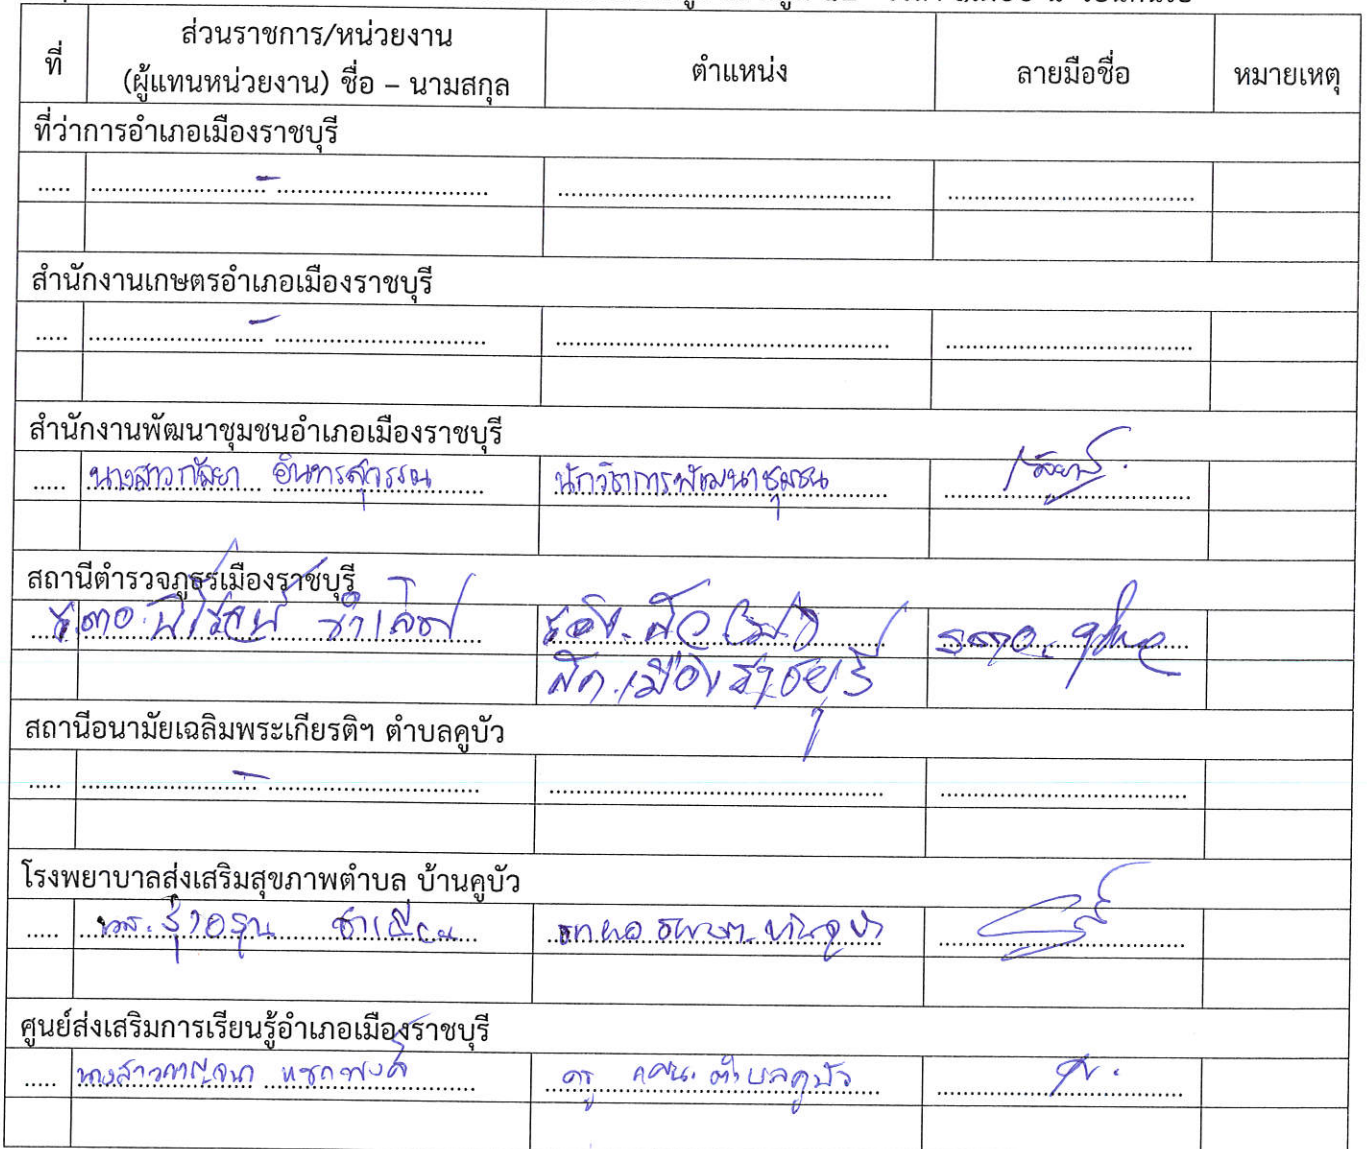 ที่ ส่วนราชการ/หน่วยงาน ตำแหน่ง ลายมือชื่อ หมายเหตุ
(ผู้แทนหน่วยงาน) ชื่อ – นามสกุล
ที่ว่าการอำเภอเมืองราชบุรี
สำนักงานเกษตรอำเภอเมืองราชบุรี
สำนักงานพัฒนาชุมชนอำเภอเมืองราชบุรี
นางสาวกัลยา อินทรสุวรรณ นักวิชาการพัฒนาชุมชน
สถานีตำรวจภูธรเมืองราชบุรี
ร.ต.อ.
สภ.เมืองราชบุรี
สถานีอนามัยเฉลิมพระเกียรติฯ ตำบลคูบัว
โรงพยาบาลส่งเสริมสุขภาพตำบล บ้านคูบัว
นส.รุ่งอรุณ
ศูนย์ส่งเสริมการเรียนรู้อำเภอเมืองราชบุรี
นางสาวกาญจนา ครู กศน.ตำบลคูบัว